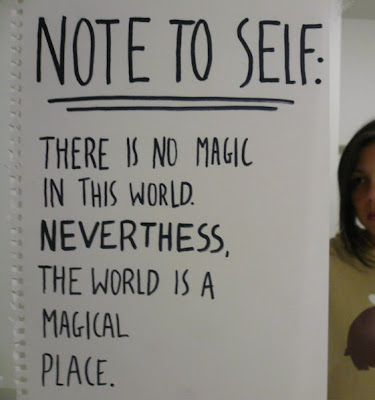 NOTE TO SELF:
THERE IS NO MAGIC
IN THIS WORLD.
NEVERTHESS,
THE WORLD IS A
MAGICAL
PLACE.